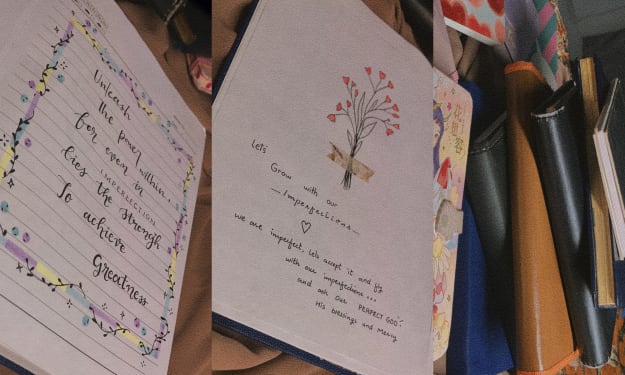 Unleash
the power within...
for even in
IMPERFECTION
lies the strength
To achieve
Greatness
Let's
Grow with our
—Imperfections—
we are imperfect, lets accept it and fly
with our imperfections...
and ask our PERFECT GOD
His blessings and Mercy